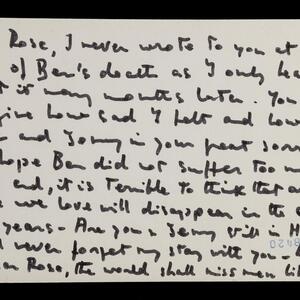 Rose, I never wrote to you at
of Ben's death as I only hea
t it many months later. You
give how sad I felt and how
and Jenny in your great sorr
hope Ben did not suffer too m
end, it is terrible to think that a
e we love will disappear in the
years - Are you & Jenny still in H
d never forget my stay with you -
ear Rose, the world shall miss men li